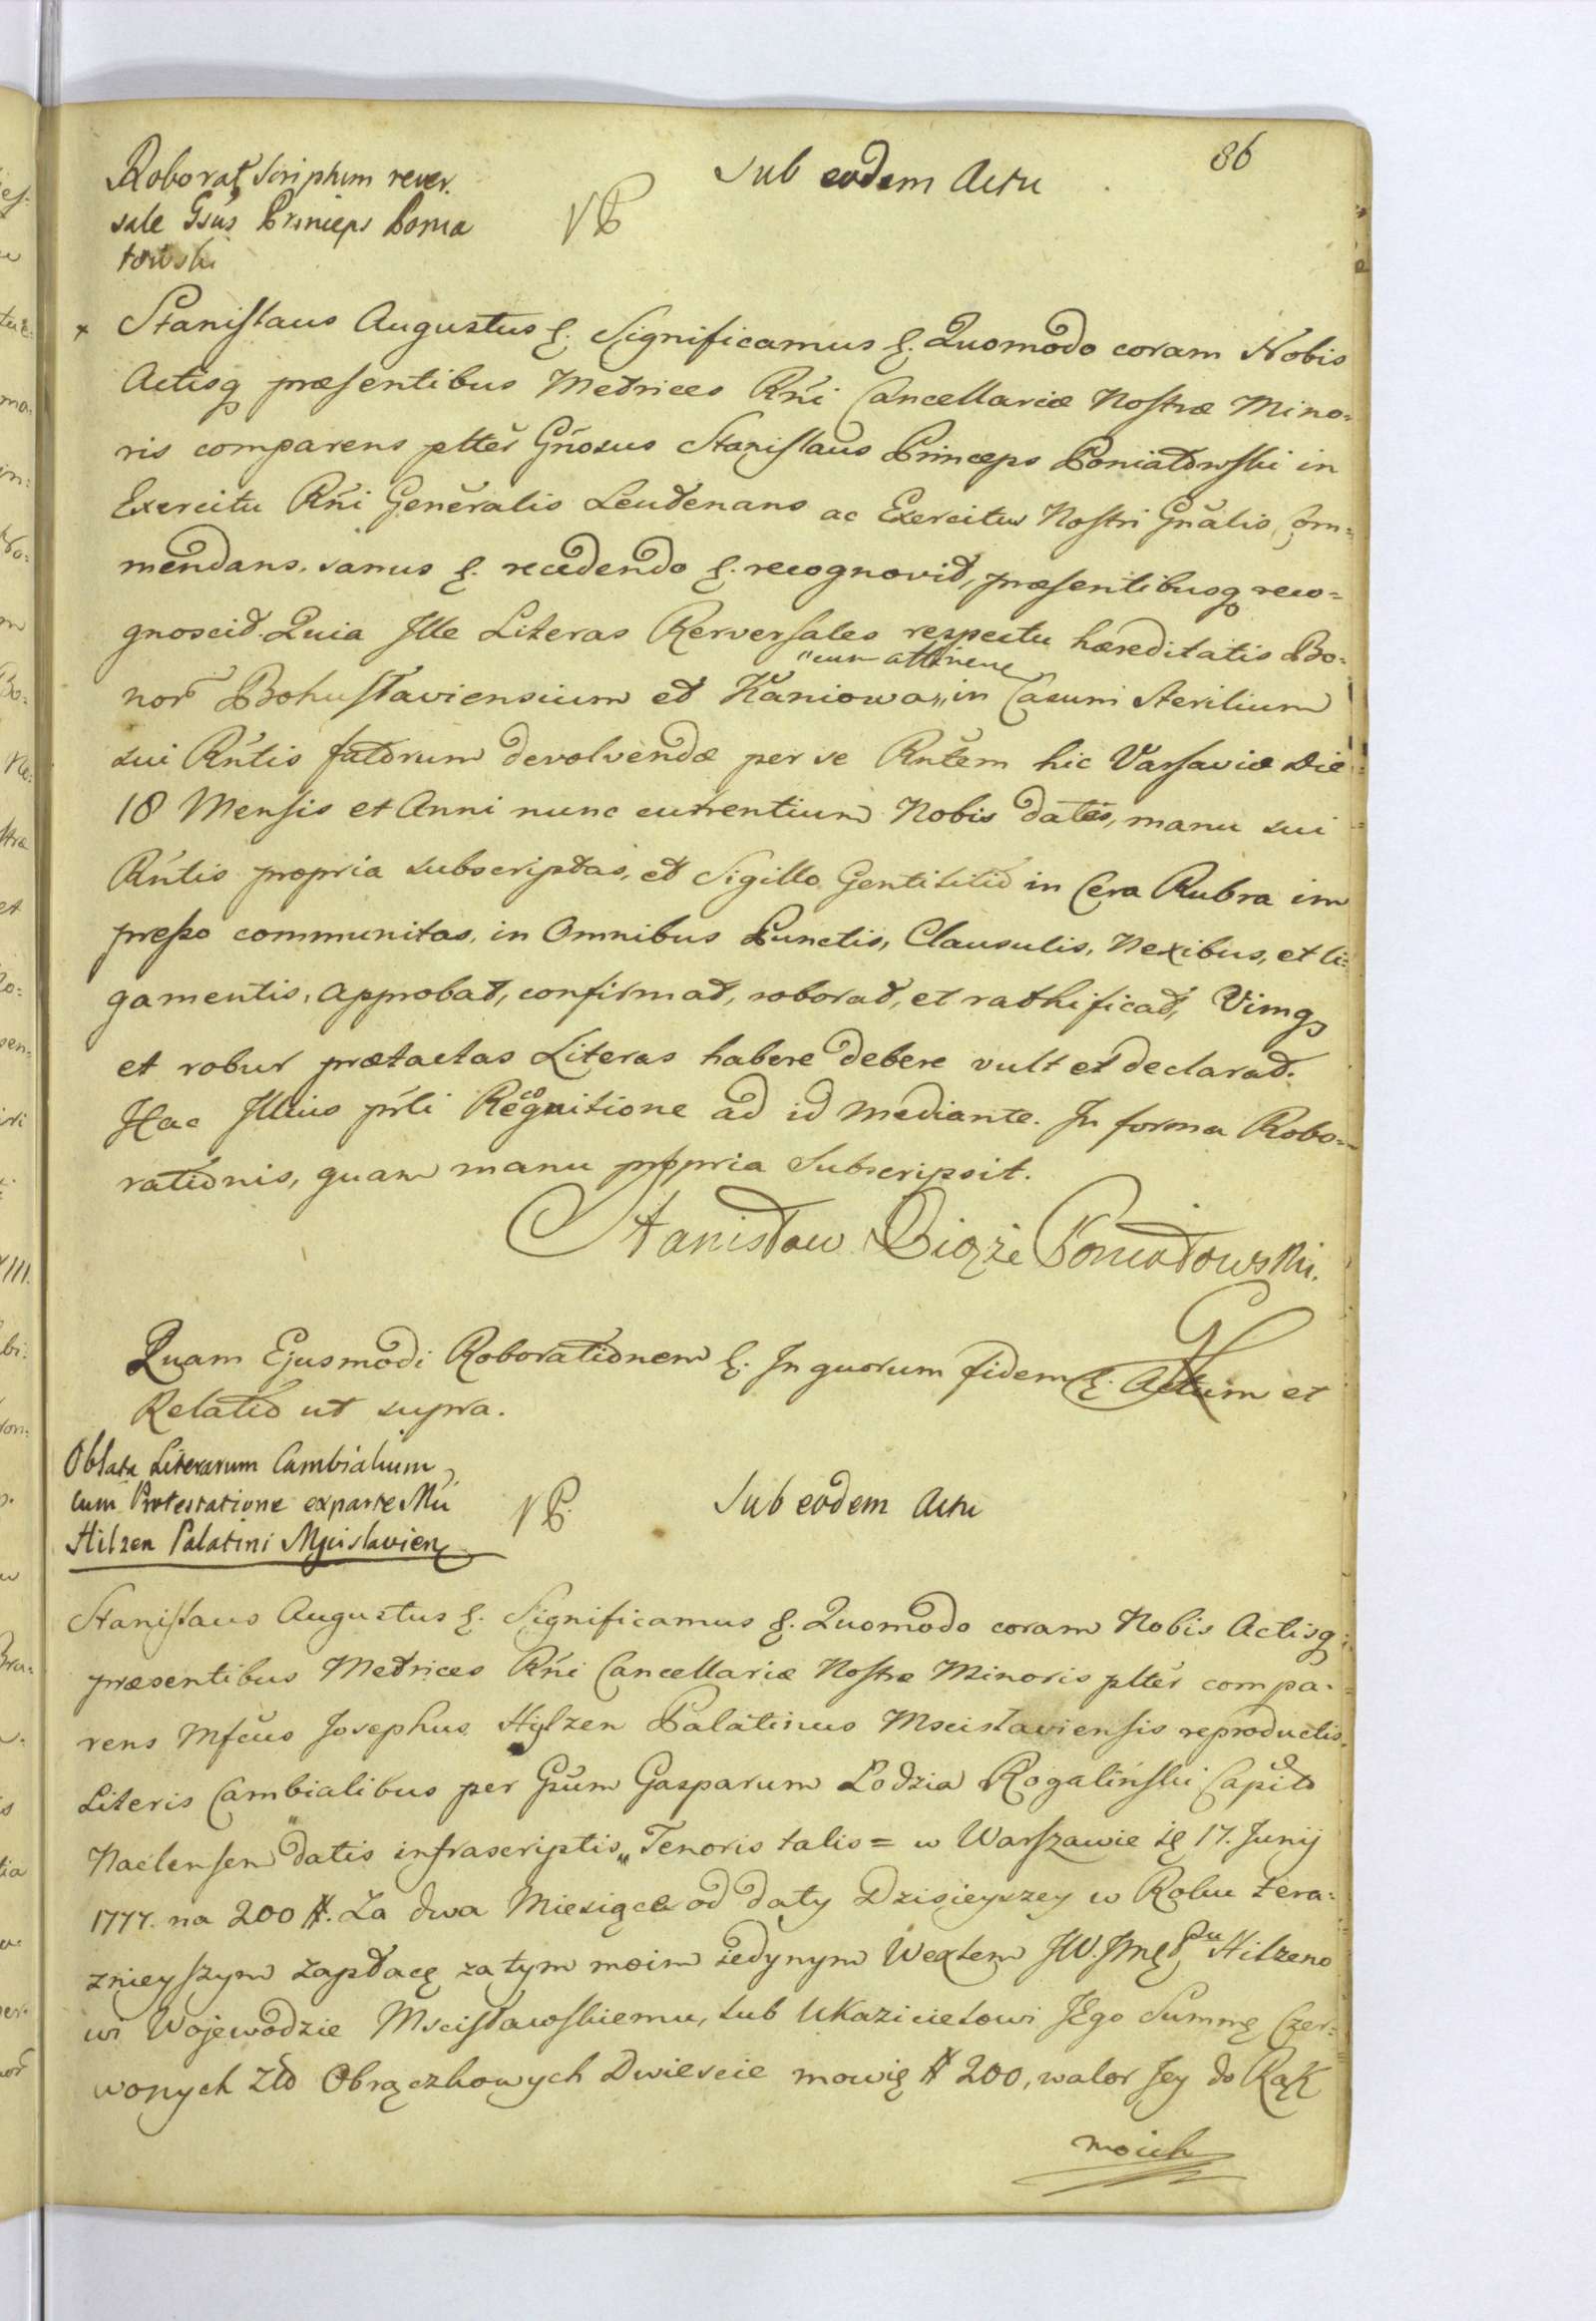 86
Roborat Scriptum rever.
sale Gsus Princeps Ponia
towski
VP
Sub eodem Actu
Stanislaus Augustus &. Significamus &. Quomodo coram Nobis
Actisq praesentibus Metrices Rni Cancellariæ Nostræ Mino=
ris comparens pltter Gnosus Stanislaus Princeps Poniatowski in
Exercitu Rni Generalis Leutenans ac Exercitus Nostri Gnalis Com=
mendans, sanus &. recedendo &. recognovit, praesentibusq reco=
gnoscit. Quia Ille Literas Rerversales respectu hæreditatis Bo=
nor Bohuslaviensium et Kaniowa „cum attinene„ in Casum Sterilium
sui Rntis fatorum devolvendæ per se Rntem hic Varsaviæ Die
18 Mensis et Anni nunc currentium Nobis datas, manu sui
Rntis propria subscriptas, et Sigillo Gentilitio in Cera Rubra im
presso communitas, in Omnibus Punctis, Clausulis, Nexibus, et li=
gamentis, approbat, confirmat, roborat, et rathificat, Vimq
et robur prætactas Literas habere debere vult et declarat.
Hac Illius prli Recognitione ad id mediante. In forma Robo=
rationis, quam manu propria Subscripsit.
Stanisław Xiąże Poniatowski.
Quam Ejusmodi Roborationem &. In quorum fidem &. Actum et
Relatio ut supra.
Oblata Literarum Cambialium
cum Protestatione ex parte Mci
Hilzen Palatini Mscislavien
VP.
Sub eodem Actu
Stanislaus Augustus &. Significamus &. Quomodo coram Nobis Actisq
praesentibus Metrices Rni Cancellariæ Nostræ Minoris pltter compa=
rens Mfcus Josephus Hylzen Palatinus Mscislaviensis reproductis
Literis Cambialibus per Gsum Gasparum Lodzia Rogaliński Capit
Naclensen datis infrascriptis „Tenoris talis = w Warszawie 17. Junij
1777. na 200 #. Za dwa Miesiące od daty Dzisieyszey w Roku tera=
znieyszym zapłacę za tym moim iedynym Wexlem JW. Jmę Pu Hilzeno
wi Wojewodzie Mscisławskiemu, lub Ukazicielowi JEgo Summę Czer=
wonych Złł Obrączkowych Dwiescie mowię # 200, walor Jey do Rąk
moich